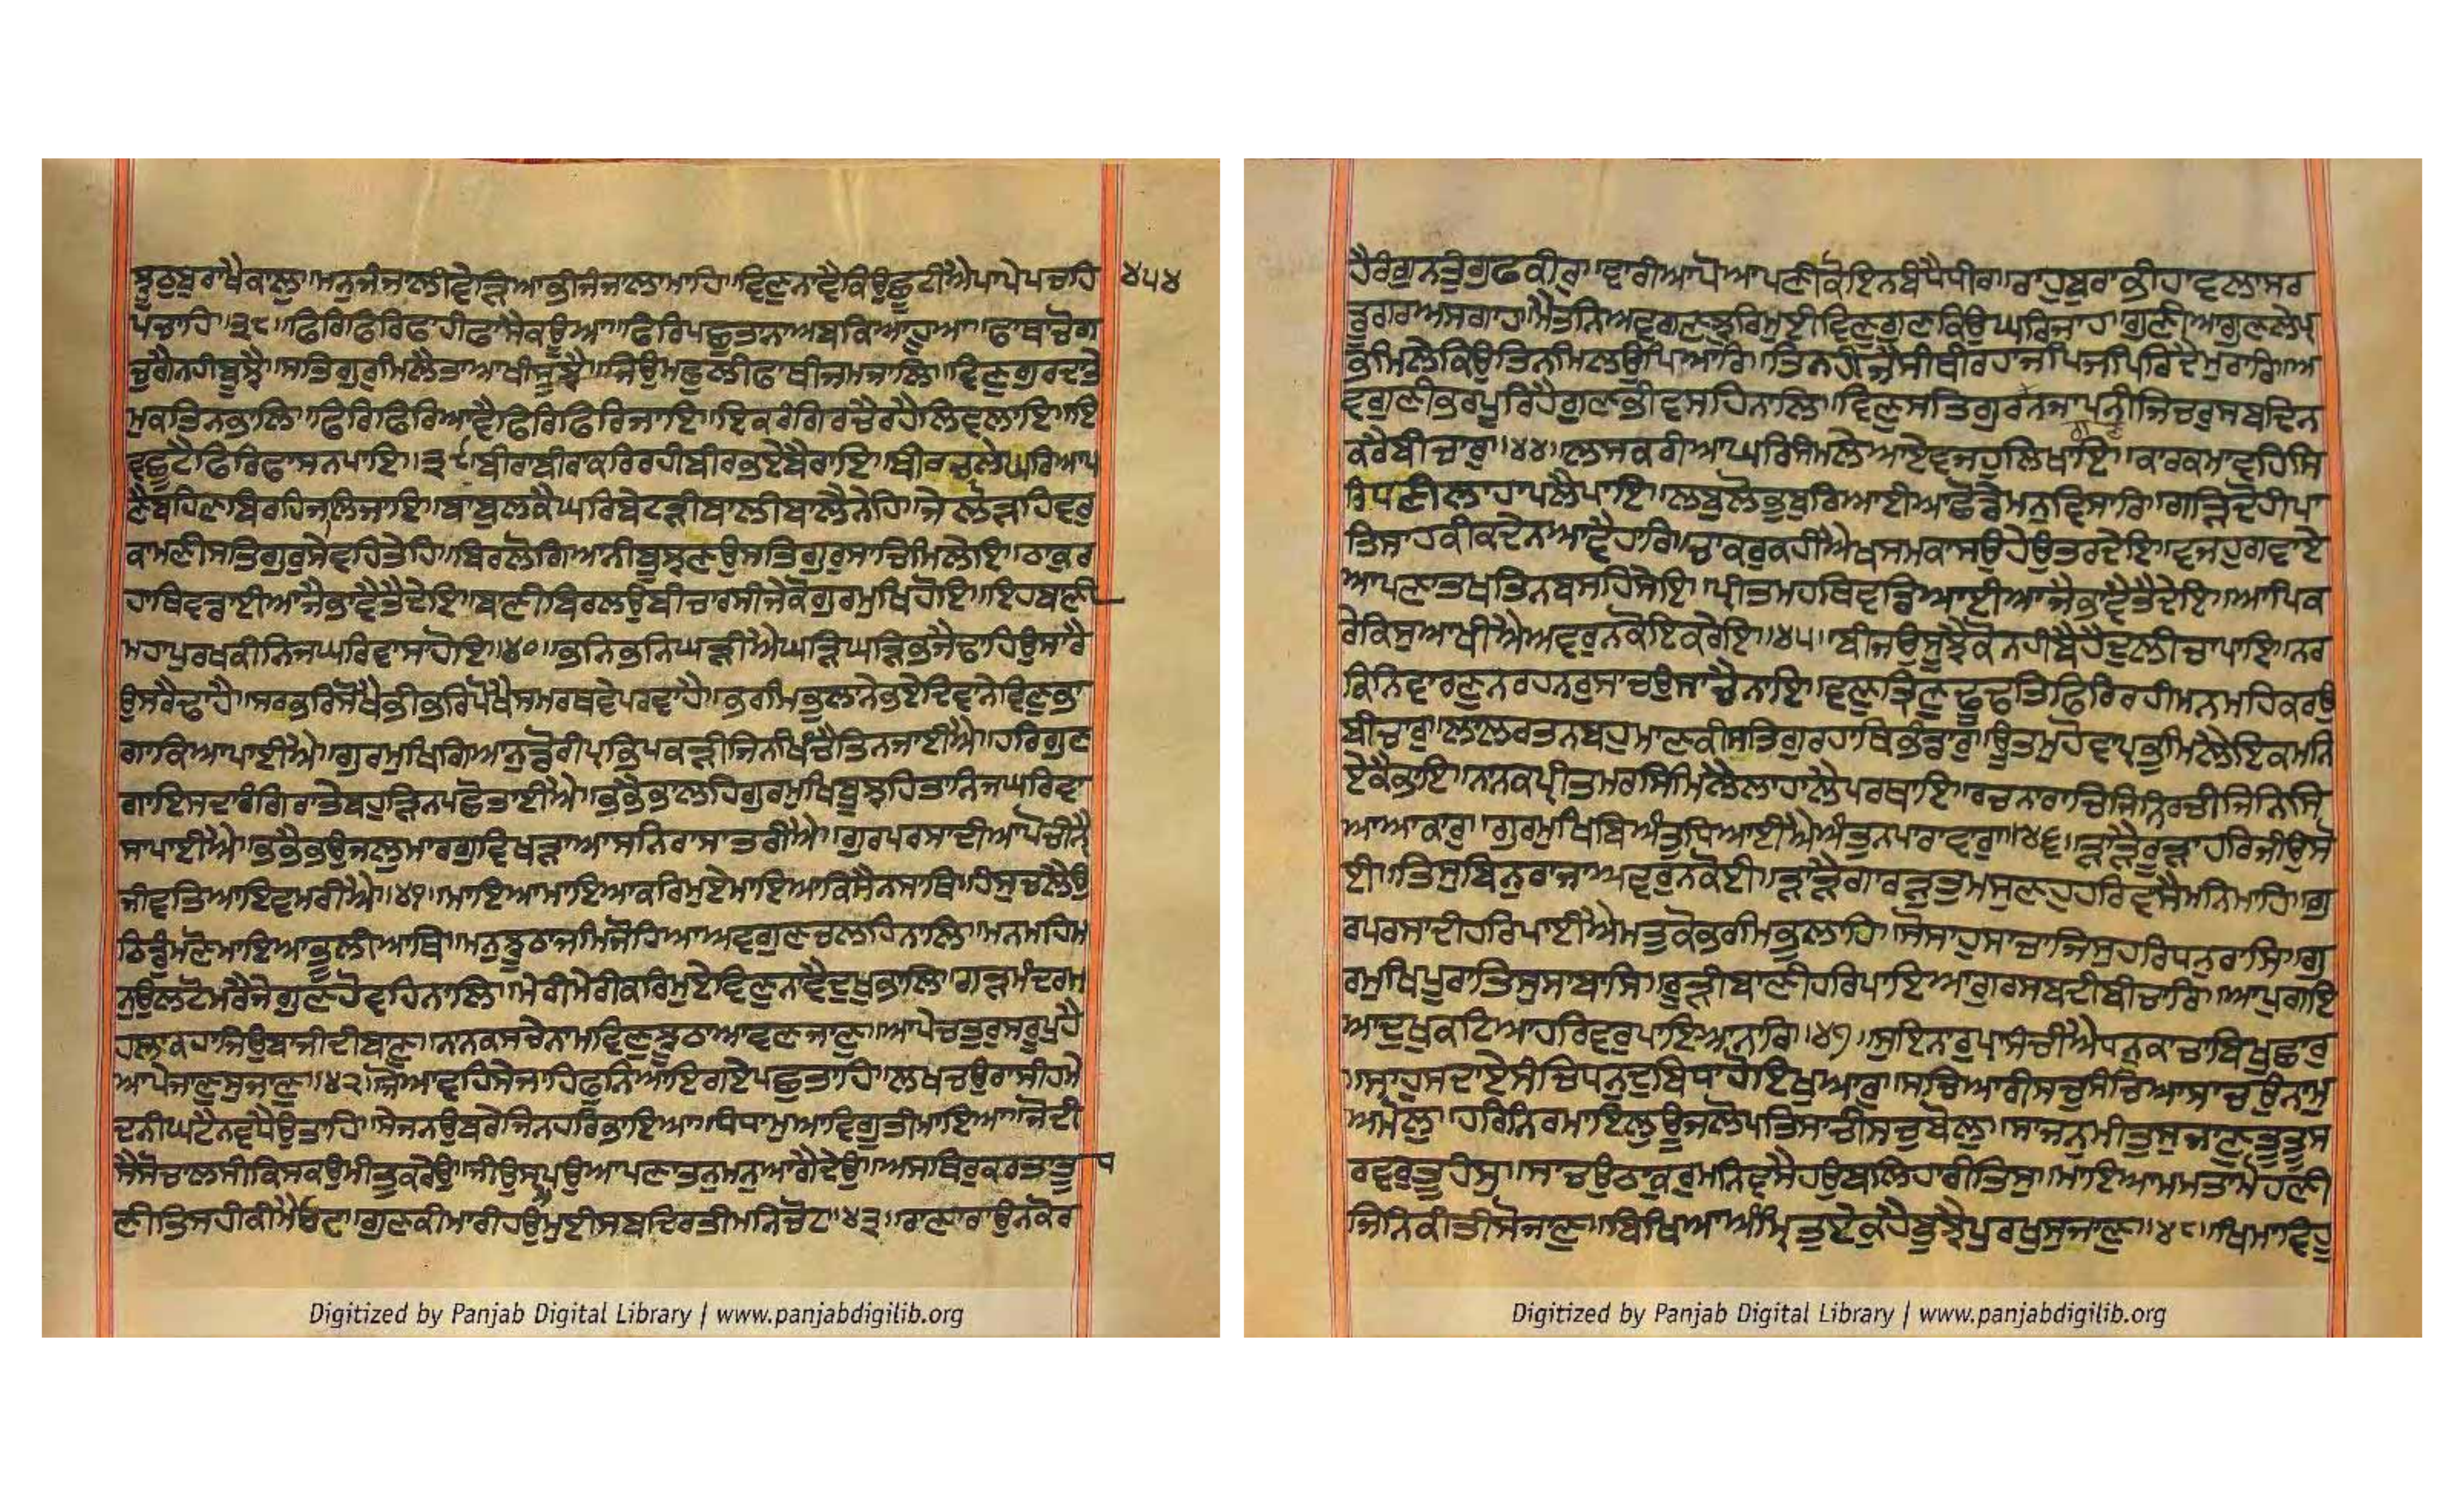 ਝੂਠੁ ਬੁਰਾ ਖੈ ਕਾਲੁ ॥ ਮਨੁ ਜੰਜਾਲੀ ਵੇੜਿਆ ਭੀ ਜੰਜਾਲਾ ਮਾਹਿ ॥ ਵਿਣੁ ਨਾਵੈ ਕਿਉ ਛੂਟੀਐ ਪਾਪੇ ਪਚਹਿ
੪੫੪
ਪਚਾਹਿ ॥੩੮॥ ਫਿਰਿ ਫਿਰਿ ਫਾਹੀ ਫਾਸੈ ਕਊਆ ॥ ਫਿਰਿ ਪਛੁਤਾਨਾ ਅਬ ਕਿਆ ਹੂਆ ॥ ਫਾਥਾ ਚੋਗ
ਚੁਗੈ ਨਹੀ ਬੂਝੈ ॥ ਸਤਿਗੁਰੁ ਮਿਲੈ ਤਾ ਆਖੀ ਸੂਝੈ ॥ ਜਿਉ ਮਛੁਲੀ ਫਾਥੀ ਜਮ ਜਾਲਿ ॥ ਵਿਣੁ ਗੁਰ ਦਾਤੇ
ਮੁਕਤਿ ਨ ਭਾਲਿ ॥ ਫਿਰਿ ਫਿਰਿ ਆਵੈ ਫਿਰਿ ਫਿਰਿ ਜਾਇ ॥ ਇਕ ਰੰਗਿ ਰਚੈ ਰਹੈ ਲਿਵ ਲਾਇ ॥ ਇ
ਵ ਛੂਟੈ ਫਿਰਿ ਫਾਸ ਨ ਪਾਇ ॥੩੯॥ ਬੀਰਾ ਬੀਰਾ ਕਰਿ ਰਹੀ ਬੀਰ ਭਏ ਬੈਰਾਇ ॥ ਬੀਰ ਚਲੇ ਘਰਿ ਆਪ
ਣੈ ਬਹਿਣ ਬਿਰਹਿ ਜਲਿ ਜਾਇ ॥ ਬਾਬੁਲ ਕੈ ਘਰਿ ਬੇਟੜੀ ਬਾਲੀ ਬਾਲੈ ਨੇਹਿ ॥ ਜੇ ਲੋੜਹਿ ਵਰੁ
ਕਾਮਣੀ ਸਤਿਗੁਰੁ ਸੇਵਹਿ ਤੇਹਿ ॥ ਬਿਰਲੋ ਗਿਆਨੀ ਬੂਝਣਉ ਸਤਿਗੁਰੁ ਸਾਚਿ ਮਿਲੇਇ ॥ ਠਾਕੁਰ
ਹਾਥਿ ਵਡਾਈਆ ਜੈ ਭਾਵੈ ਤੈ ਦੇਇ ॥ ਬਾਣੀ ਬਿਰਲਉ ਬੀਚਾਰਸੀ ਜੇ ਕੋ ਗੁਰਮੁਖਿ ਹੋਇ ॥ ਇਹ ਬਾਣੀ
ਮਹਾ ਪੁਰਖ ਕੀ ਨਿਜ ਘਰਿ ਵਾਸਾ ਹੋਇ ॥੪੦॥ ਭਨਿ ਭਨਿ ਘੜੀਐ ਘੜਿ ਘੜਿ ਭਜੈ ਢਾਹਿ ਉਸਾਰੈ
ਉਸਰੇ ਢਾਹੈ ॥ ਸਰ ਭਰਿ ਸੋਖੈ ਭੀ ਭਰਿ ਪੋਖੈ ਸਮਰਥ ਵੇਪਰਵਾਹੈ ॥ ਭਰਮਿ ਭੁਲਾਨੇ ਭਏ ਦਿਵਾਨੇ ਵਿਣੁ ਭਾ
ਗਾ ਕਿਆ ਪਾਈਐ ॥ ਗੁਰਮੁਖਿ ਗਿਆਨੁ ਡੋਰੀ ਪ੍ਰਭਿ ਪਕੜੀ ਜਿਨ ਖਿੰਚੈ ਤਿਨ ਜਾਈਐ ॥ ਹਰਿ ਗੁਣ
ਗਾਇ ਸਦਾ ਰੰਗਿ ਰਾਤੇ ਬਹੁੜਿ ਨ ਪਛੋਤਾਈਐ ॥ ਭਭੈ ਭਾਲਹਿ ਗੁਰਮੁਖਿ ਬੂਝਹਿ ਤਾ ਨਿਜ ਘਰਿ ਵਾ
ਸਾ ਪਾਈਐ ॥ ਭਭੈ ਭਉਜਲੁ ਮਾਰਗੁ ਵਿਖੜਾ ਆਸ ਨਿਰਾਸਾ ਤਰੀਐ ॥ ਗੁਰ ਪਰਸਾਦੀ ਆਪੋ ਚੀਨੈ
ਜੀਵਤਿਆ ਇਵ ਮਰੀਐ ॥੪੧॥ ਮਾਇਆ ਮਾਇਆ ਕਰਿ ਮੁਏ ਮਾਇਆ ਕਿਸੈ ਨ ਸਾਥਿ ॥ ਹੰਸੁ ਚਲੈ ਉ
ਠਿ ਡੁਮਣੋ ਮਾਇਆ ਭੂਲੀ ਆਥਿ ॥ ਮਨੁ ਝੂਠਾ ਜਮਿ ਜੋਹਿਆ ਅਵਗੁਣ ਚਲਹਿ ਨਾਲਿ ॥ ਮਨ ਮਹਿ ਮ
ਨੁ ਉਲਟੋ ਮਰੈ ਜੇ ਗੁਣ ਹੋਵਹਿ ਨਾਲਿ ॥ ਮੇਰੀ ਮੇਰੀ ਕਰਿ ਮੁਏ ਵਿਣੁ ਨਾਵੈ ਦੁਖੁ ਭਾਲਿ ॥ ਗੜ ਮੰਦਰ ਮ
ਹਲਾ ਕਹਾ ਜਿਉ ਬਾਜੀ ਦੀਬਾਣੁ ॥ ਨਾਨਕ ਸਚੇ ਨਾਮ ਵਿਣੁ ਝੂਠਾ ਆਵਣ ਜਾਣੁ ॥ ਆਪੇ ਚਤੁਰੁ ਸਰੂਪੁ ਹੈ
ਆਪੇ ਜਾਣੁ ਸੁਜਾਣੁ ॥੪੨॥ ਜੋ ਆਵਹਿ ਸੇ ਜਾਹਿ ਫੁਨਿ ਆਇ ਗਏ ਪਛੁਤਾਹਿ ॥ ਲਖ ਚਉਰਾਸੀਹ ਮੇ
ਦਨੀ ਘਟੈ ਨ ਵਧੈ ਉਤਾਹਿ ॥ ਸੇ ਜਨ ਉਬਰੇ ਜਿਨ ਹਰਿ ਭਾਇਆ ॥ ਧੰਧਾ ਮੁਆ ਵਿਗੂਤੀ ਮਾਇਆ ॥ ਜੋ ਦੀ
ਸੈ ਸੋ ਚਾਲਸੀ ਕਿਸ ਕਉ ਮੀਤੁ ਕਰੇਉ ॥ ਜੀਉ ਸਪਉ ਆਪਣਾ ਤਨੁ ਮਨੁ ਆਗੈ ਦੇਉ ॥ ਅਸਥਿਰੁ ਕਰਤਾ ਤੂ
ਧ
ਣੀ ਤਿਸ ਹੀ ਕੀ ਮੈ ਓਟ ॥ ਗੁਣ ਕੀ ਮਾਰੀ ਹਉ ਮੁਈ ਸਬਦਿ ਰਤੀ ਮਨਿ ਚੋਟ ॥੪੩॥ ਰਾਣਾ ਰਾਉ ਨ ਕੋ ਰ
ਹੈ ਰੰਗੁ ਨ ਤੁੰਗੁ ਫਕੀਰੁ ॥ ਵਾਰੀ ਆਪੋ ਆਪਣੀ ਕੋਇ ਨ ਬੰਧੈ ਧੀਰ ॥ ਰਾਹੁ ਬੁਰਾ ਭੀਹਾਵਲਾ ਸਰ
ਡੂਗਰ ਅਸਗਾਹ ॥ ਮੈ ਤਨਿ ਅਵਗਣ ਝੁਰਿ ਮੁਈ ਵਿਣੁ ਗੁਣ ਕਿਉ ਘਰਿ ਜਾਹ ॥ ਗੁਣੀਆ ਗੁਣ ਲੇ ਪ੍ਰ
ਭ ਮਿਲੇ ਕਿਉ ਤਿਨ ਮਿਲਉ ਪਿਆਰਿ ॥ ਤਿਨ ਹੀ ਜੈਸੀ ਥੀ ਰਹਾ ਜਪਿ ਜਪਿ ਰਿਦੈ ਮੁਰਾਰਿ ॥ ਅ
ਵਗੁਣੀ ਭਰਪੂਰ ਹੈ ਗੁਣ ਭੀ ਵਸਹਿ ਨਾਲਿ ॥ ਵਿਣੁ ਸਤਿਗੁਰ ਨ ਜਾਪਨੀ ਜਿਚਰੁ ਸਬਦਿ ਨ
ਕਰੇ ਬੀਚਾਰੁ ॥੪੪॥ ਲਸਕਰੀਆ ਘਰਿ ਸੰਮਲੇ ਆਏ ਵਜਹੁ ਲਿਖਾਇ ॥ ਕਾਰ ਕਮਾਵਹਿ ਸਿ
ਰਿ ਧਣੀ ਲਾਹਾ ਪਲੈ ਪਾਇ ॥ ਲਬੁ ਲੋਭੁ ਬੁਰਿਆਈਆ ਛੋਡੇ ਮਨੁ ਵਿਸਾਰਿ ॥ ਗੜਿ ਦੋਹੀ ਪਾ
ਤਿਸਾਹ ਕੀ ਕਦੇ ਨ ਆਵੈ ਹਾਰਿ ॥ ਚਾਕਰੁ ਕਹੀਐ ਖਸਮ ਕਾ ਸਉਹੇ ਉਤਰ ਦੇਇ ॥ ਵਜਹੁ ਗਵਾਏ
ਆਪਣਾ ਤਖਤਿ ਨ ਬਸਹਿ ਸੇਇ ॥ ਪ੍ਰੀਤਮ ਹਥਿ ਵਡਿਆਈਆ ਜੈ ਭਾਵੈ ਤੈ ਦੇਇ ॥ ਆਪਿ ਕ
ਰੇ ਕਿਸੁ ਆਖੀਐ ਅਵਰੁ ਨ ਕੋਇ ਕਰੇਇ ॥੪੫॥ ਬੀਜਉ ਸੂਝੈ ਕੋ ਨਹੀ ਬੈਹੈ ਦੁਲੀਚਾ ਪਾਇ ॥ ਨਰ
ਕ ਨਿਵਾਰਣੁ ਨਰਹ ਨਰੁ ਸਾਚਉ ਸਾਚੈ ਨਾਇ ॥ ਵਣੁ ਤ੍ਰਿਣੁ ਢੂਢਤ ਫਿਰਿ ਰਹੀ ਮਨ ਮਹਿ ਕਰਉ
ਬੀਚਾਰੁ ॥ ਲਾਲ ਰਤਨ ਬਹੁ ਮਾਣਕੀ ਸਤਿਗੁਰ ਹਾਥਿ ਭੰਡਾਰੁ ॥ ਊਤਮੁ ਹੋਵਾ ਪ੍ਰਭੁ ਮਿਲੇ ਇਕ ਮਨਿ
ਏਕੈ ਭਾਇ ॥ ਨਾਨਕ ਪ੍ਰੀਤਮ ਰਸਿ ਮਿਲੈ ਲਾਹਾ ਲੈ ਪਰਥਾਇ ॥ ਰਚਨਾ ਰਾਚਿ ਜਿਨਿ ਰਚੀ ਜਿਨਿ ਸਿ
ਆ ਆਕਾਰੁ ॥ ਗੁਰਮੁਖਿ ਬਿਅੰਤੁ ਧਿਆਈਐ ਅੰਤੁ ਨ ਪਾਰਾਵਾਰੁ ॥੪੬॥ ੜਾੜੈ ਰੂੜਾ ਹਰਿ ਜੀਉ ਸੋ
ਈ ॥ ਤਿਸੁ ਬਿਨੁ ਰਾਜਾ ਅਵਰੁ ਨ ਕੋਈ ॥ ੜਾੜੈ ਗਾਰੜੁ ਤੁਮ ਸੁਣਹੁ ਹਰਿ ਵਸੈ ਮਨ ਮਾਹਿ ॥ ਗੁ
ਰ ਪਰਸਾਦੀ ਹਰਿ ਪਾਈਐ ਮਤੁ ਕੋ ਭਰਮਿ ਭੁਲਾਹਿ ॥ ਸੋ ਸਾਹੁ ਸਾਚਾ ਜਿਸੁ ਹਰਿ ਧਨੁ ਰਾਸਿ ॥ ਗੁ
ਰਮੁਖਿ ਪੂਰਾ ਤਿਸੁ ਸਾਬਾਸਿ ॥ ਰੂੜੀ ਬਾਣੀ ਹਰਿ ਪਾਇਆ ਗੁਰ ਸਬਦੀ ਬੀਚਾਰਿ ॥ ਆਪੁ ਗਇ
ਆ ਦੁਖੁ ਕਟਿਆ ਹਰਿ ਵਰੁ ਪਾਇਆ ਨਾਰਿ ॥੪੭॥ ਸੁਇਨਾ ਰੁਪਾ ਸੰਚੀਐ ਧਨੁ ਕਾਚਾ ਬਿਖੁ ਛਾਰੁ
॥ ਸਾਹੁ ਸਦਾਏ ਸੰਚਿ ਧਨੁ ਦੁਬਿਧਾ ਹੋਇ ਖੁਆਰੁ ॥ ਸਚਿਆਰੀ ਸਚੁ ਸੰਚਿਆ ਸਾਚਉ ਨਾਮੁ
ਅਮੋਲੁ ॥ ਹਰਿ ਨਿਰਮਾਇਲੁ ਊਜਲੋ ਪਤਿ ਸਾਚੀ ਸਚੁ ਬੋਲੁ ॥ ਸਾਜਨੁ ਮੀਤੁ ਸੁਜਾਣੁ ਤੂ ਤੂ ਸ
ਰਵਰੁ ਤੂ ਹੰਸੁ ॥ ਸਾਚਉ ਠਾਕੁਰੁ ਮਨਿ ਵਸੈ ਹਉ ਬਲਿਹਾਰੀ ਤਿਸੁ ॥ ਮਾਇਆ ਮਮਤਾ ਮੋਹਣੀ
ਜਿਨਿ ਕੀਤੀ ਸੋ ਜਾਣੁ ॥ ਬਿਖਿਆ ਅੰਮ੍ਰਿਤੁ ਏਕੁ ਹੈ ਬੂਝੈ ਪੁਰਖੁ ਸੁਜਾਣੁ ॥੪੮॥ ਖਿਮਾ ਵਿਹੂ
Digitized by Panjab Digital Library | www.panjabdigilib.org
Digitized by Panjab Digital Library | www.panjabdigilib.org